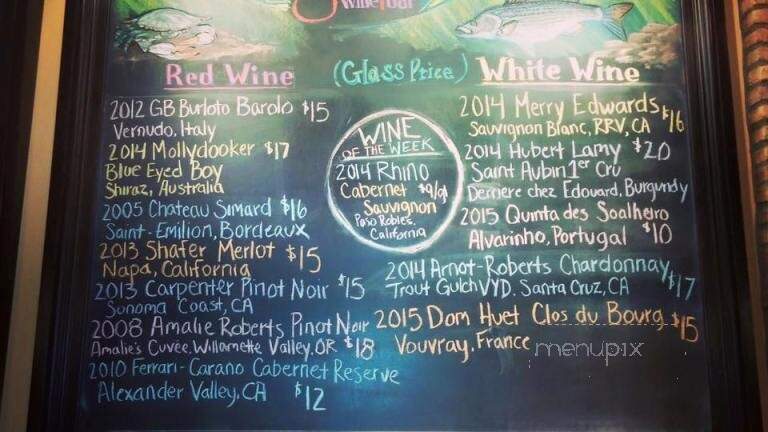 Wine Tour
Red Wine (Glass Price) White Wine
2012 GB Burloto Barolo $15
Vernudo, Italy
2014 Mollydooker $17
Blue Eyed Boy
Shiraz, Australia
2005 Chateau Simard $16
Saint-Emilion, Bordeaux
2013 Shafer Merlot $15
Napa, California
2013 Carpenter Pinot Noir $15
Sonoma Coast, CA
2008 Amalie Roberts Pinot Noir
Amalie's Cuvée, Willamette Valley, OR $18
2010 Ferrari-Carano Cabernet Reserve
Alexander Valley, CA $12
WINE
OF THE WEEK
2014 Rhino
Cabernet $9/gl
Sauvignon
Paso Robles,
California
2014 Merry Edwards $16
Sauvignon Blanc, RRV, CA
2014 Hubert Lamy $20
Saint Aubin 1er Cru
Derriere chez Edouard, Burgundy
2015 Quinta des Soalheiro
Alvarinho, Portugal $10
2014 Arnot-Roberts Chardonnay
Trout Gulch VYD. Santa Cruz, CA $17
2015 Dom Huet Clos du Bourg $15
Vouvray, France
menupix